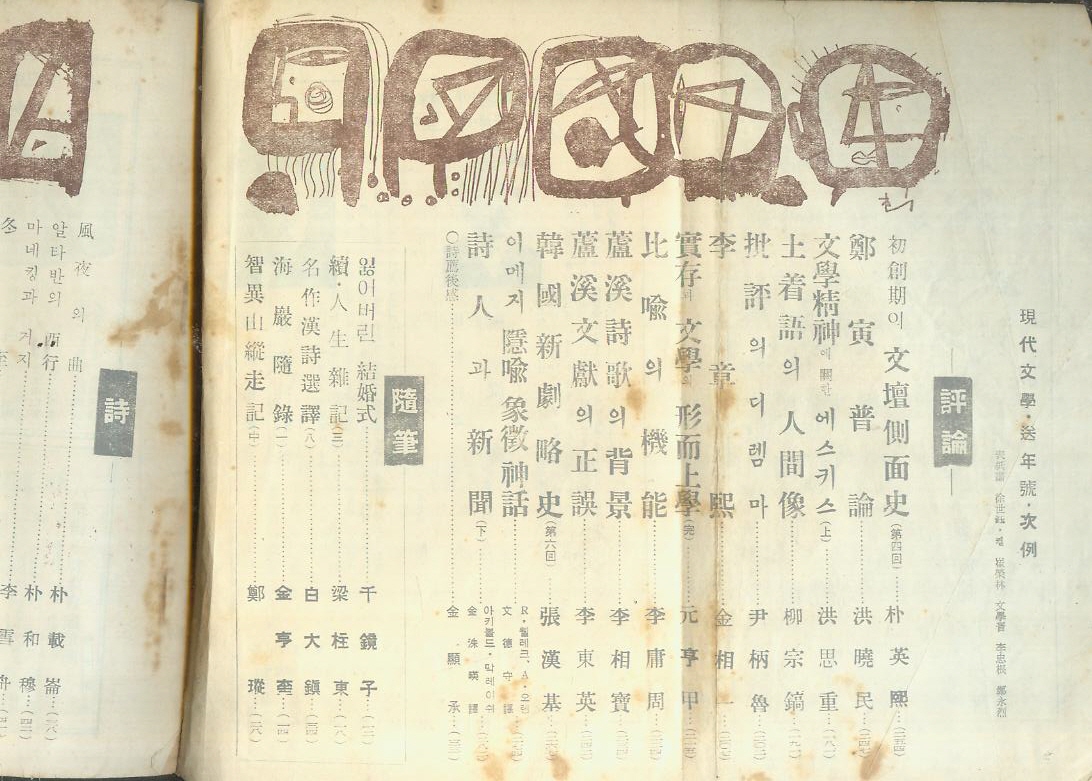 現代文學·送年號·次例
評論
初創期의 文壇側面史 (第四回) 朴英熙
鄭寅普論 洪曉民
文學精神에 關한 에스키스 (上) 洪思重
土着語의 人間像 柳宗鎬
批評의 디렘마 尹柄魯
李章熙 金相一
實存의 文學의 形而上學 (完) 元亨甲
比喩의 機能 李庸周
蘆溪詩歌의 背景 李相寶
蘆溪文獻의 正誤 李東英
韓國新劇略史 (第六回) 張漢基
이메지 隱喩 象徵 神話 R·웰레크, A·오렌 文德守譯
詩人과 新聞 (下) 아키볼드·막레이쉬 金洙暎譯
○詩薦後感 金顯承
隨筆
잃어버린 結婚式 千鏡子
續·人生雜記 (三) 梁柱東
名作漢詩選譯 (八) 白大鎭
海巖隨錄 (一) 金亨奎
智異山縱走記 (中) 鄭
詩
風夜의 曲 朴載崙
알타반의 西行 朴和穆
마네킹과 거지 李雪舟